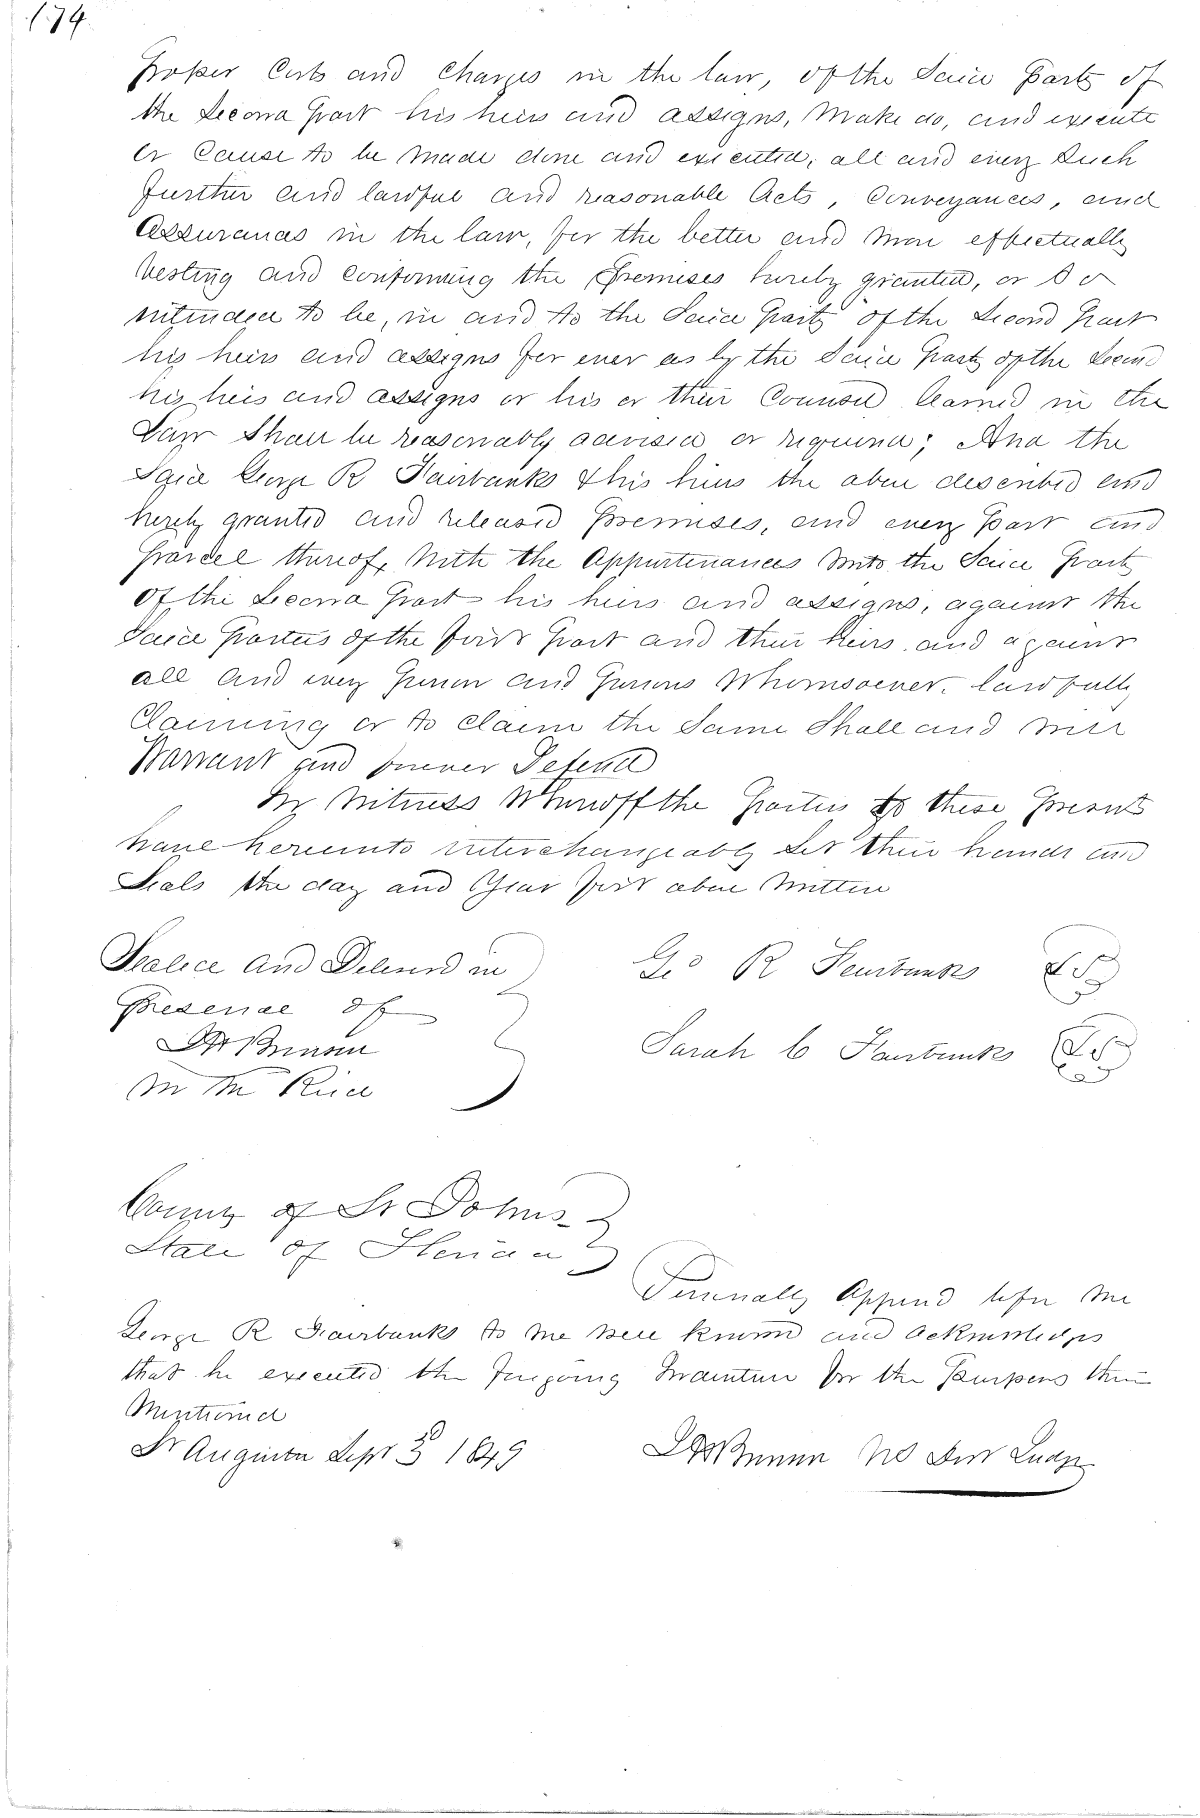 174
proper Costs and Charges in the law, of the Said Party of
the Second Part his heirs and assigns, Make do, and execute
or Cause to be made done and executed, all and every Such
further and lawful and reasonable Acts, Conveyances, and
Assurances in the law, for the better and more effectually
Vesting and Conforming the Premises hereby granted, or So
intended to be, in and to the Said Party of the Second Part
his heirs and assigns for ever as by the Said Party of the Second
his heirs and assigns or his or their Counsel learned in the
Law Shall be reasonably advised or required; And the
Said George R Fairbanks & his heirs the above described and
hereby granted and released Premises, and every Part and
Parcel thereof, With the Appurtenances Unto the Said Party
Of the Second Part his heirs and assigns, against the
Said Parties of the first Part and their heirs and against
all and every Person and Persons Whomsoever, lawfully
Claiming or to claim the Same Shall and Will
Warrant and forever Defend
In Witness Whereoff the Parties to these Presents
have hereunto interchangeably Set their hands and
Seals the day and Year first above Written
Sealed and Delivered in
Presence of
Geo R Fairbanks LS
Sarah C Fairbanks LS
County of St Johns
State of Florida
Personally Appeared before Me
George R Fairbanks to me Well known and acknowledges
that he executed the foregoing Indenture for the Purposes therein
Mentioned
St Augustin Sept 3d 1849